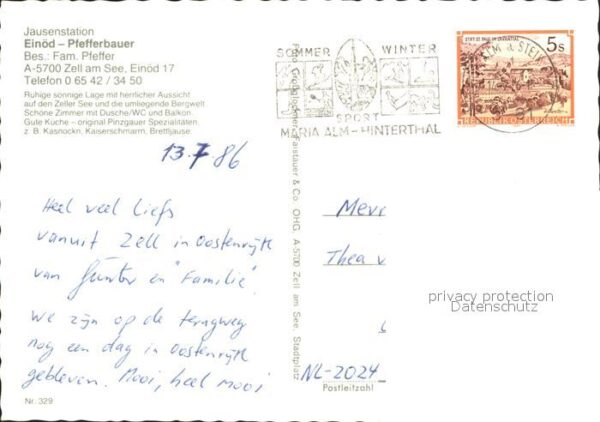 Jausenstation
Einöd – Pfefferbauer
Bes.: Fam. Pfeffer
A-5700 Zell am See, Einöd 17
Telefon 0 65 42 / 34 50
Ruhige sonnige Lage mit herrlicher Aussicht
auf den Zeller See und die umliegende Bergwelt
Schöne Zimmer mit Dusche/WC und Balkon.
Gute Küche – original Pinzgauer Spezialitäten
z. B. Kasnockn, Kaiserschmarrn, Brettljause.
13.7.86
Heel veel liefs
vanuit Zell in Oostenrijk
van Günter en "Familie".
We zijn op de terugweg
nog een dag in Oostenrijk
gebleven. Mooi, heel mooi
Nr. 329
SOMMER WINTER
SPORT
MARIA ALM – HINTERTHAL
ALM A. STEIN
STIFT ST. PAUL IM LAVANTTAL
5s
REPUBLIK ÖSTERREICH
Faistauer & Co. OHG, A-5700 Zell am See, Stadtplatz
Mevr
Thea v
NL-2024
Postleitzahl
privacy protection
Datenschutz